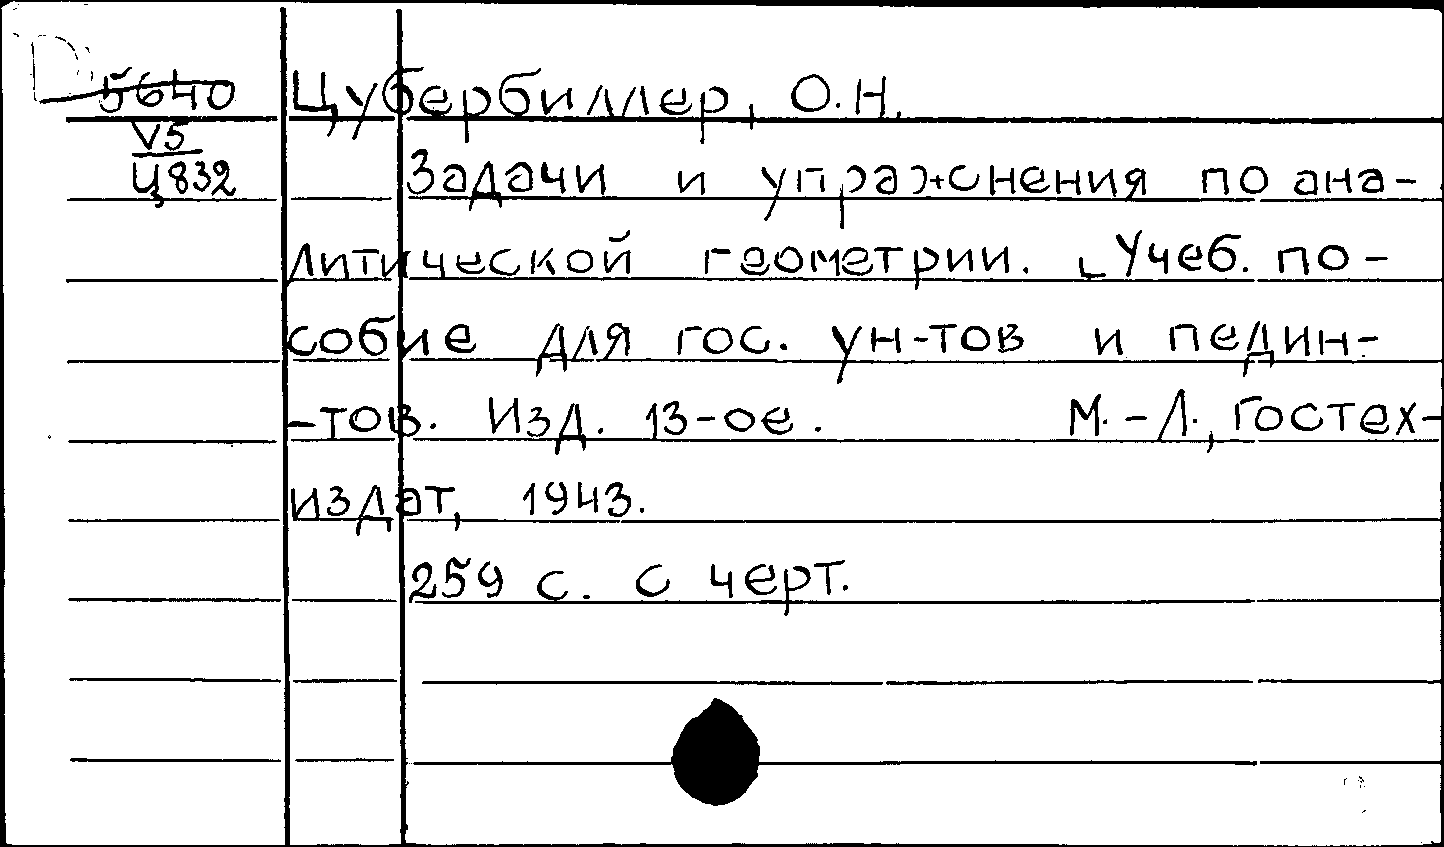 5640 Цубербиллер, О.Н.
V5
Ц832 Задачи и упражнения по ана-
литической геометрии. Учеб. по-
собие для гос. ун-тов и педин-
-тов. Изд. 13-ое. М.-Л., Гостех-
издат, 1943.
259 с. с черт.